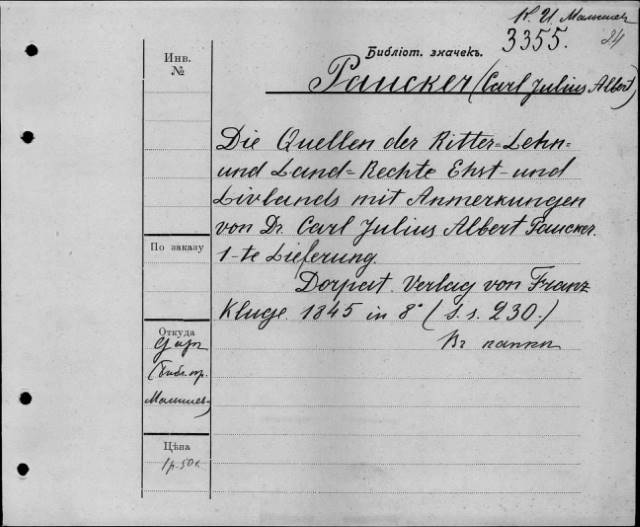 К. И. Малышев
3355. 24
Инв.
№
Библіот. значекъ.
Paucker (Carl Julius Albert)
Die Quellen der Ritter=Lehn=
und Land=Rechte Ehst- und
Livlands mit Anmerkungen
von Dr. Carl Julius Albert Paucker.
1-te Lieferung.
Dorpat. Verlag von Franz
Kluge. 1845 in 8° (S. s. 230.)
Въ папкѣ
По заказу
Откуда
Даръ
(Библ. пр.
Малышев)
Цѣна
1 р. 50 к.